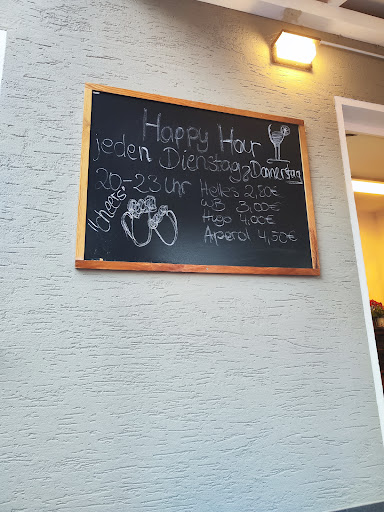 Happy Hour
jeden Dienstag & Donnerstag
20-23 Uhr Helles 2,50€
WB 3,00€
Hugo 4,00€
Aperol 4,50€
Cheers!